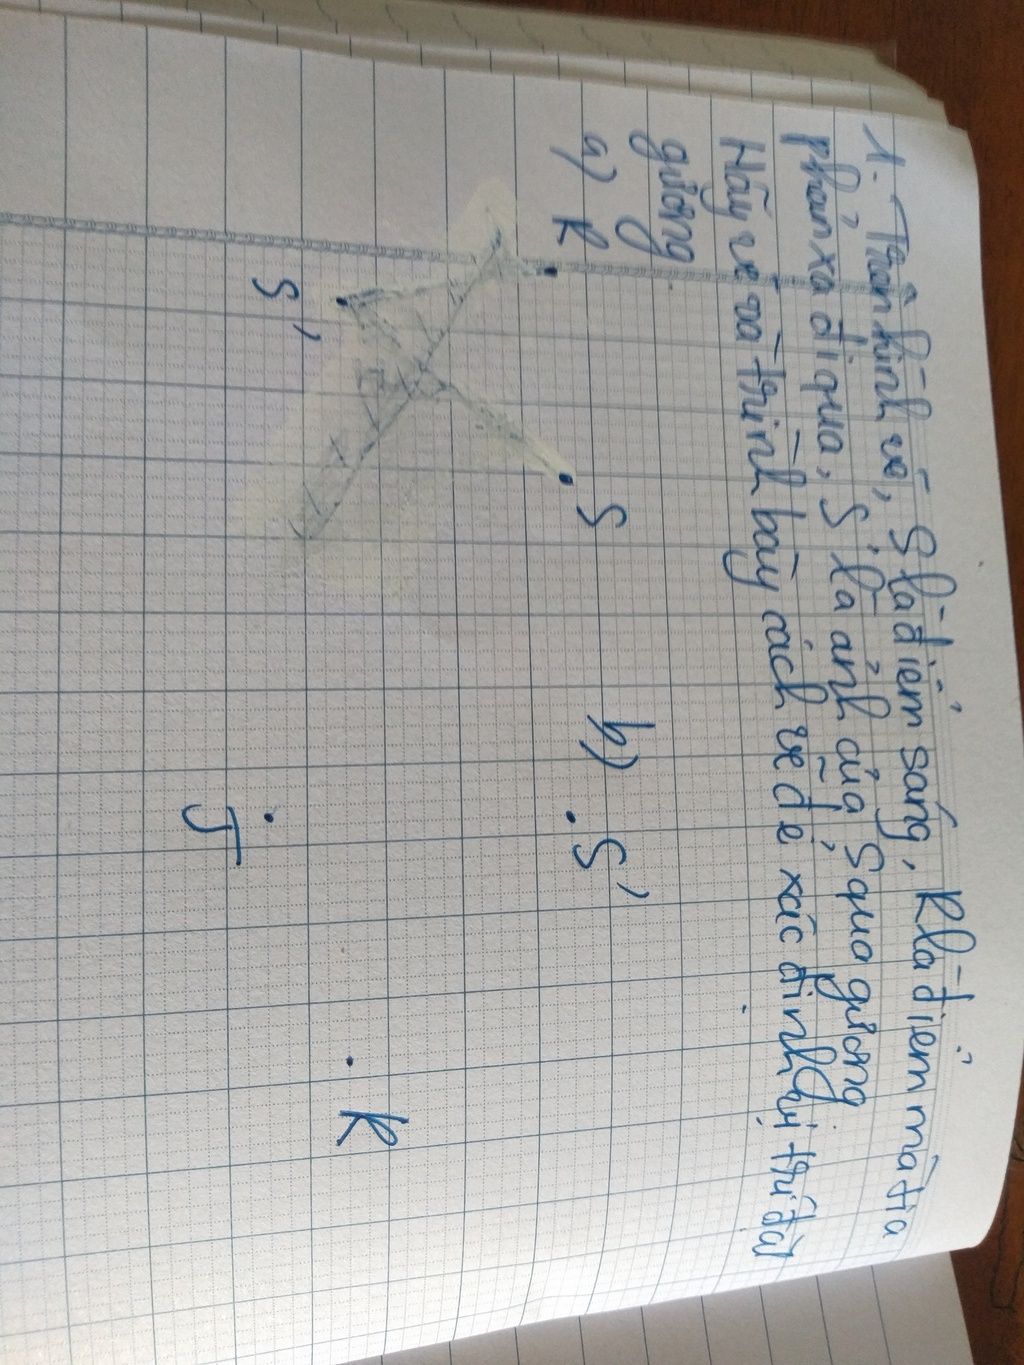 1. Theo hình vẽ, S là điểm sáng, R là điểm mà tia
phản xạ đi qua, S' là ảnh của S qua gương
Hãy vẽ và trình bày cách vẽ để xác định vị trí đặt
gương
a) R
S
S'
b) S'
R
J